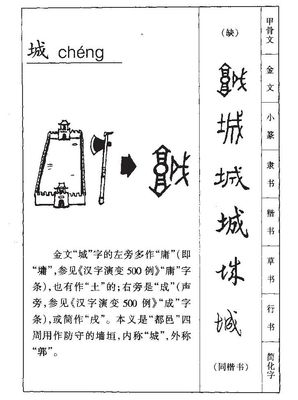 城 chéng
金文“城”字的左旁多作“𩫖”(即
“墉”,参见《汉字演变 500 例》“庸”字
条),也有作“土”的;右旁是“成”(声
旁,参见《汉字演变 500 例》“成”字
条),或简作“戌”。本义是“都邑”四
周用作防守的墙垣,内称“城”,外称
“郭”。
(缺)
城
城
城
城
城
(同楷书)
甲骨文
金文
小篆
隶书
楷书
草书
行书
简化字